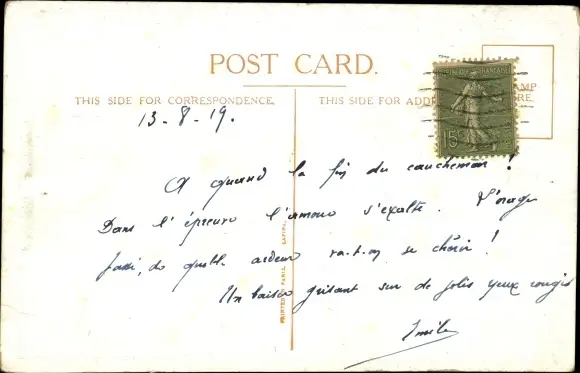 POST CARD.
THIS SIDE FOR CORRESPONDENCE.
THIS SIDE FOR ADD
MP
RE.
FRANÇAISE
15c
13-8-19.
A quand la fin du cauchemar !
Dans l'épreuve l'amour s'exalte. L'orage
passé, de quelle ardeur va-t-on se chérir !
Un baiser grisant sur de jolis yeux rougis
Emile
PRINTED IN PARIS